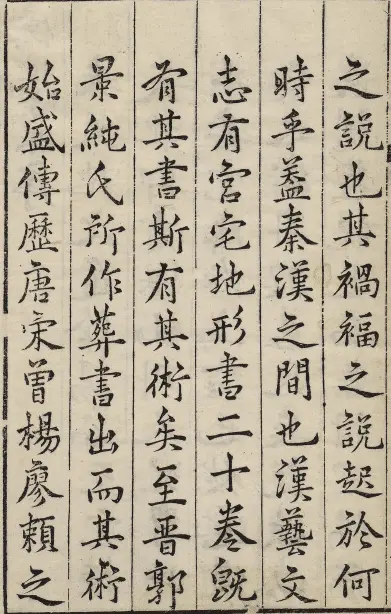 之說也其禍福之說起於何
時乎葢秦漢之間也漢藝文
志有宮宅地形書二十卷既
有其書斯有其術矣至晋郭
景純氏所作葬書出而其術
始盛傳歷唐宋曾楊廖賴之